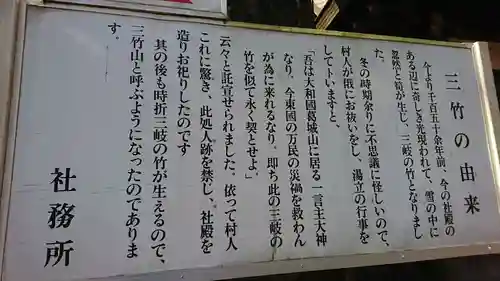 三竹の由来
今より千百五十余年前、今の社殿の
ある辺に奇しき光現われて、雪の中に
忽然と筍が生じ、三岐の竹となりまし
た。
冬の時期余りに不思議に怪しいので、
村人が俄にお祓いをし、湯立の行事を
して卜いますと、
「吾は大和國葛城山に居る一言主大神
なり、今東國の万民の災禍を救わん
が為に来れるなり、即ち此の三岐の
竹を似って永く契とせよ」
云々と託宣せられました、依って村人
これに驚き、此処人跡を禁じ、社殿を
造りお祀りしたのです
其の後も時折三岐の竹が生えるので、
三竹山と呼ぶようになったのでありま
す。
社務所